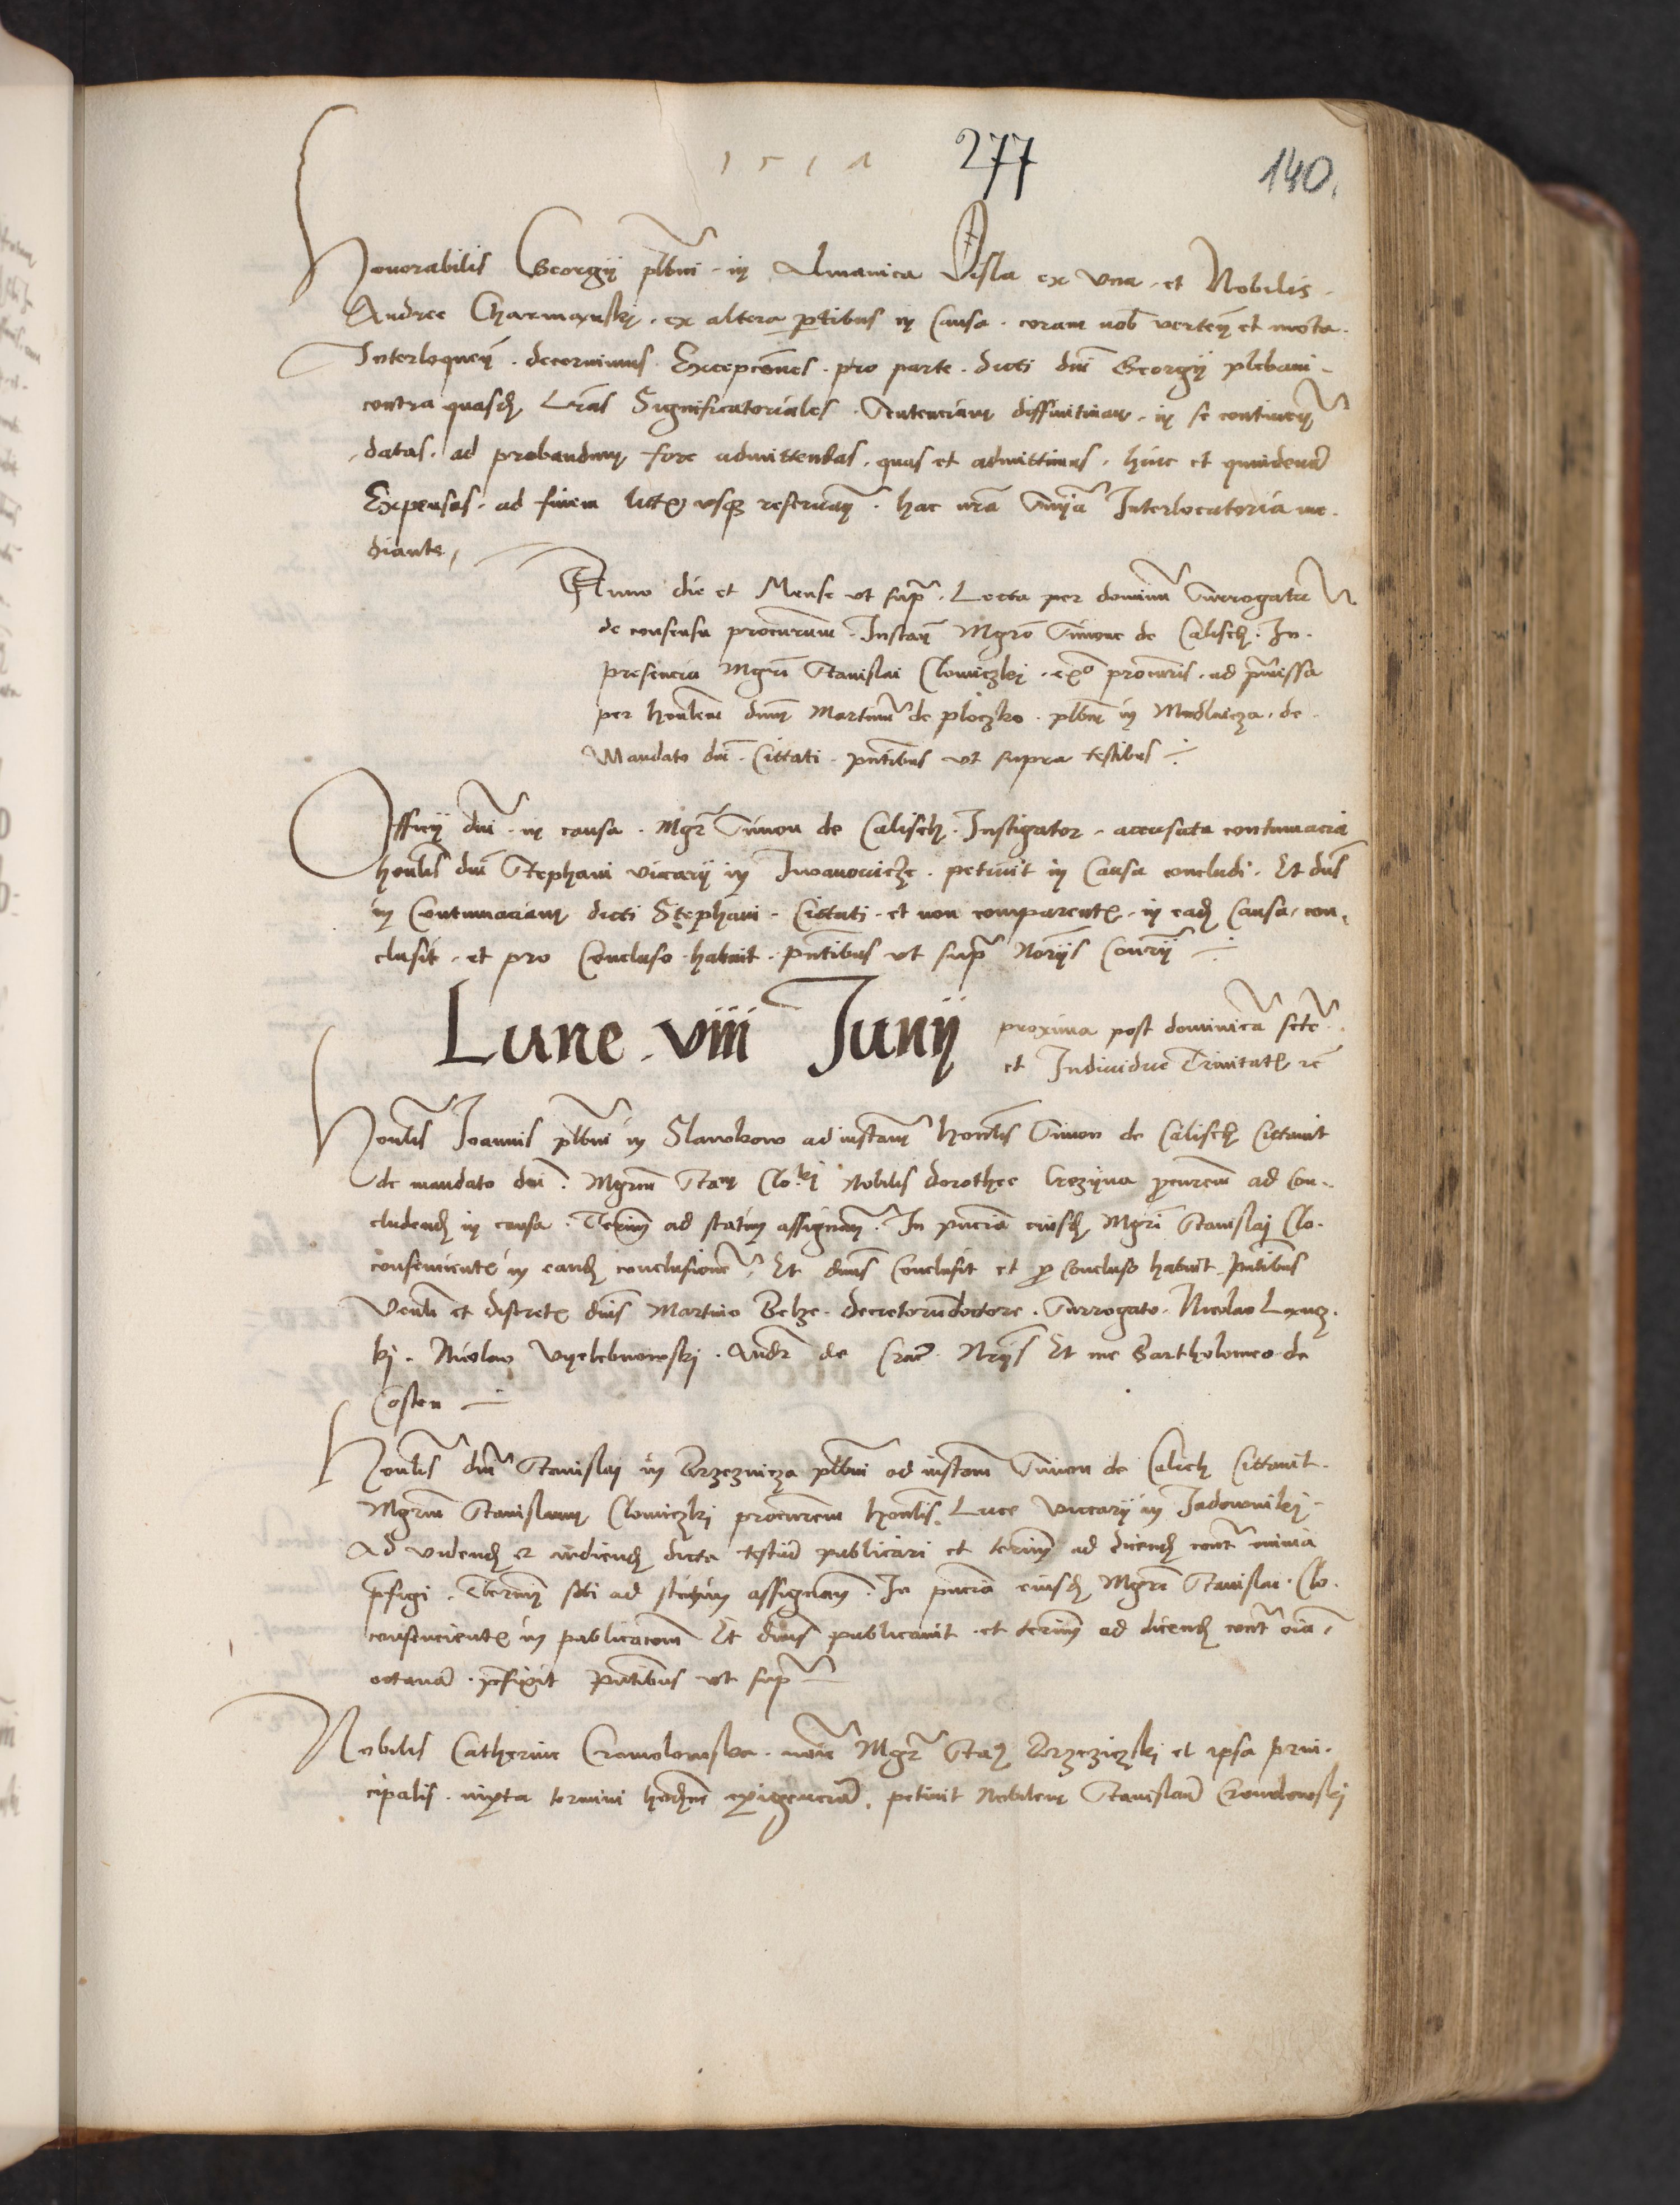 1514 277 140.
Honorabilis Georgij plbni in Almanica Visla ex vna et Nobilis
Andree Charmanskj ex altera ptibus in Causa coram nob verten et mota
Interloquen decernimus Excepcones pro parte dicti dni Georgij plebani
contra quasd Lras Significatoriales Sentenciam diffinitiuam in se continen
datas ad probandum fore admittendas quas et admittimus hinc et quindena
Expensas ad finem litis vsq reseruan hac nra Snia Interlocutoria me
diante
Anno die et Mense vt sup Lecta per dominu Surrogatu
de consensu procurum Instan Mgro Simone de Calisch In
presencia Mgri Stanislai Clowiczkj exo procuris ad pmissa
per honlem dnm Martinu de ploczko plbm in Modlnicza de
Mandato dni Cittati pntibus vt supra testibus
Officij dni in causa Mgr Simon de Calisch Instigator accusata contumacia
honlis dni Stephani vicarij in Iwanowicze petiuit in Causa concludi Et dns
in Contumaciam dicti Stephani Cittati et non comparentis in ead Causa con
clusit et pro Concluso habuit pntibus vt sup Norijs Cons rij
Lune viii Junij proxima post dominica scte
et Indiuidue Trinitatis re
Honlis Joannis plbni in Slawkow ad instam honlis Simon de Calisch Cittauit
de mandato dni Mgrum Stan Clo kj Nobilis dorothee procurem ad Con
cludend in causa Termin ad statim assignam In pncia eiusd Mgri Stanislaj Clo
consencientis in eand conclusione Et dnus Conclusit et p Concluso habuit Pntibus
Venli et discretis dnis Martino Belze decretorudoctore Surrogato Nicolao
kj Nicolao Andr de Crac Nrijs Et me Bartholomeo de
Costen
Honlis dni Stanislaj in Brzeznicza plbni ad instam Simon de Calisch Cittauit
Mgrum Stanislaum Clowiczkj procurem honlis Luce Vicarij in Jadownikj
Ad vidend et audiend dicta testiu publicari et termin ad dicend cont omnia
pfigi Termin sibi ad statim assignam In pncia eiusd Mgri Stanislai Clo
consencientis in publicacom Et dnus publicauit et termin ad dicend cont oia
octaua pfixit Pntibus vt sup
Nobilis Catherine noie Mgr Stan Brzeziczkj et ipsa prin
cipalis iuxta termini hodne exigencia petiuit Nobilem Stanislau